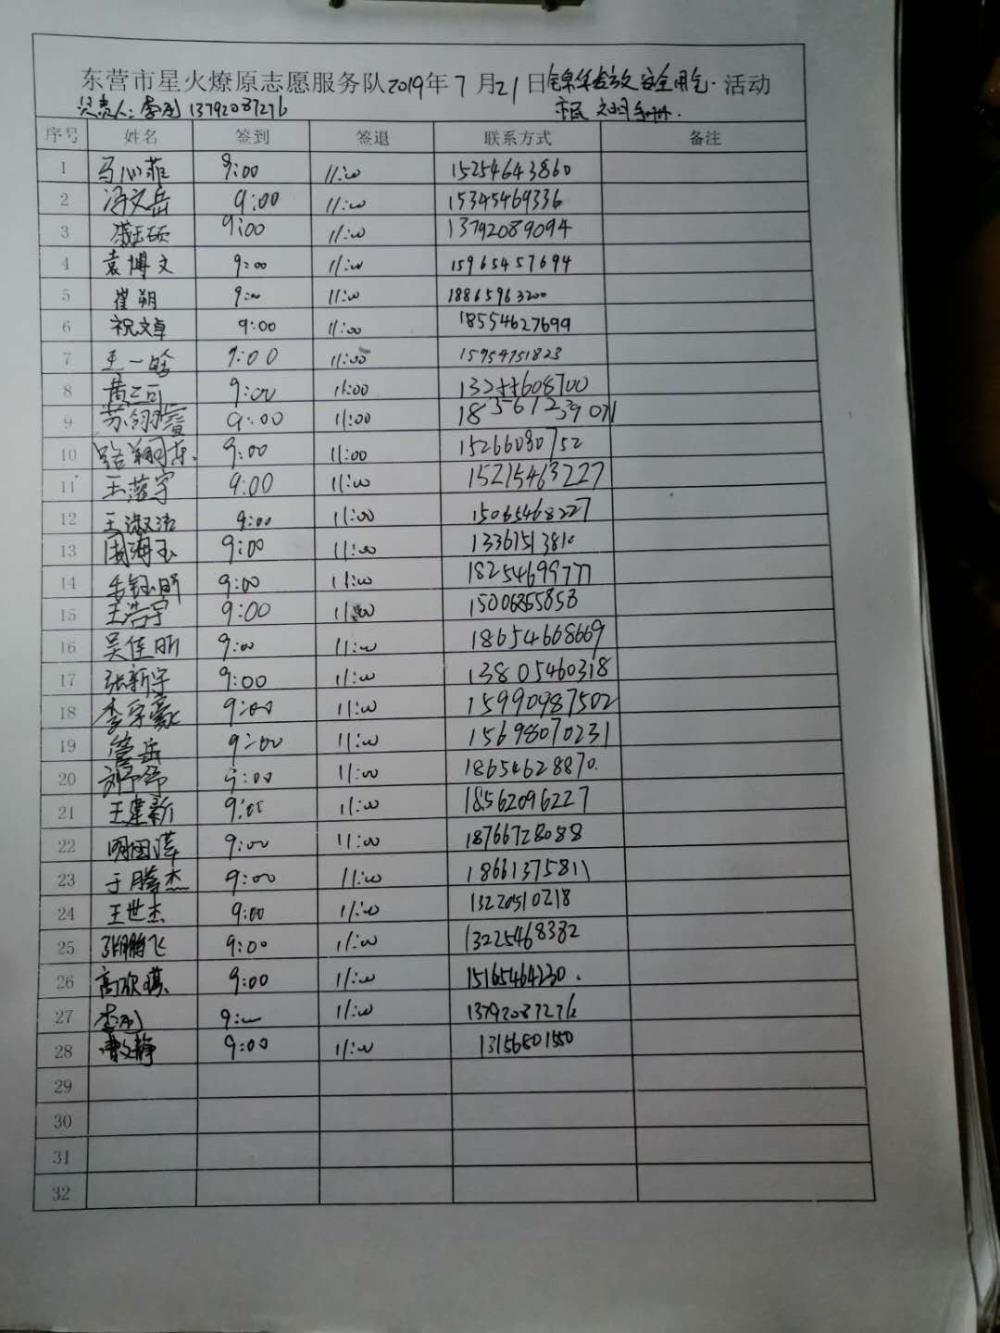 东营市星火燎原志愿服务队2019年7月21日 安全用气 活动
负责人：李 13792087276 市民 手册.
序号 姓名 签到 签退 联系方式 备注
1 马心菲 9:00 11:00 15254643860
2 冯文岳 9:00 11:00 15345469336
3 9:00 11:00 13792089094
4 袁博文 9:00 11:00 15965457694
5 崔朔 9:00 11:00 18865963200
6 祝文卓 9:00 11:00 18554627699
7 王一晗 9:00 11:00 15954751823
8 黄三可 9:00 11:00 608700
9 苏翎萱 9:00 11:00
10 9:00 11:00 15266080752
11 王 宇 9:00 11:00 15215463227
12 王淑洁 9:00 11:00 15065468227
13 周海玉 9:00 11:00 1336151381
14 9:00 11:00 18254699777
15 王浩宇 9:00 11:00
16 吴佳昕 9:00 11:00 18654668669
17 张新宇 9:00 11:00 13805460318
18 李宇豪 9:00 11:00 15990987502
19 管岳 9:00 11:00 15698070231
20 9:00 11:00 1865462887
21 王建新 9:00 11:00 18562096227
22 9:00 11:00 18766728088
23 于腾杰 9:00 11:00 18661375811
24 王世杰 9:00 11:00 13220510218
25 张鹏飞 9:00 11:00 13225468382
26 高欣琪 9:00 11:00 15165464230.
27 李 9:00 11:00 13792087276
28 曹文静 9:00 11:00 13156801550
29
30
31
32